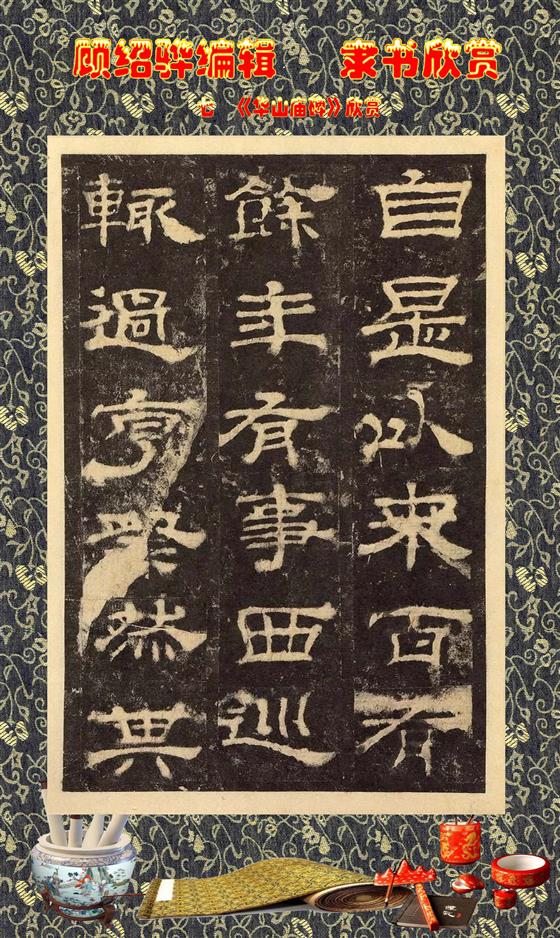 顾绍骅编辑 隶书欣赏
心 《华山庙碑》欣赏
自是以來百有
餘年有事西巡
輒過亨祭然其